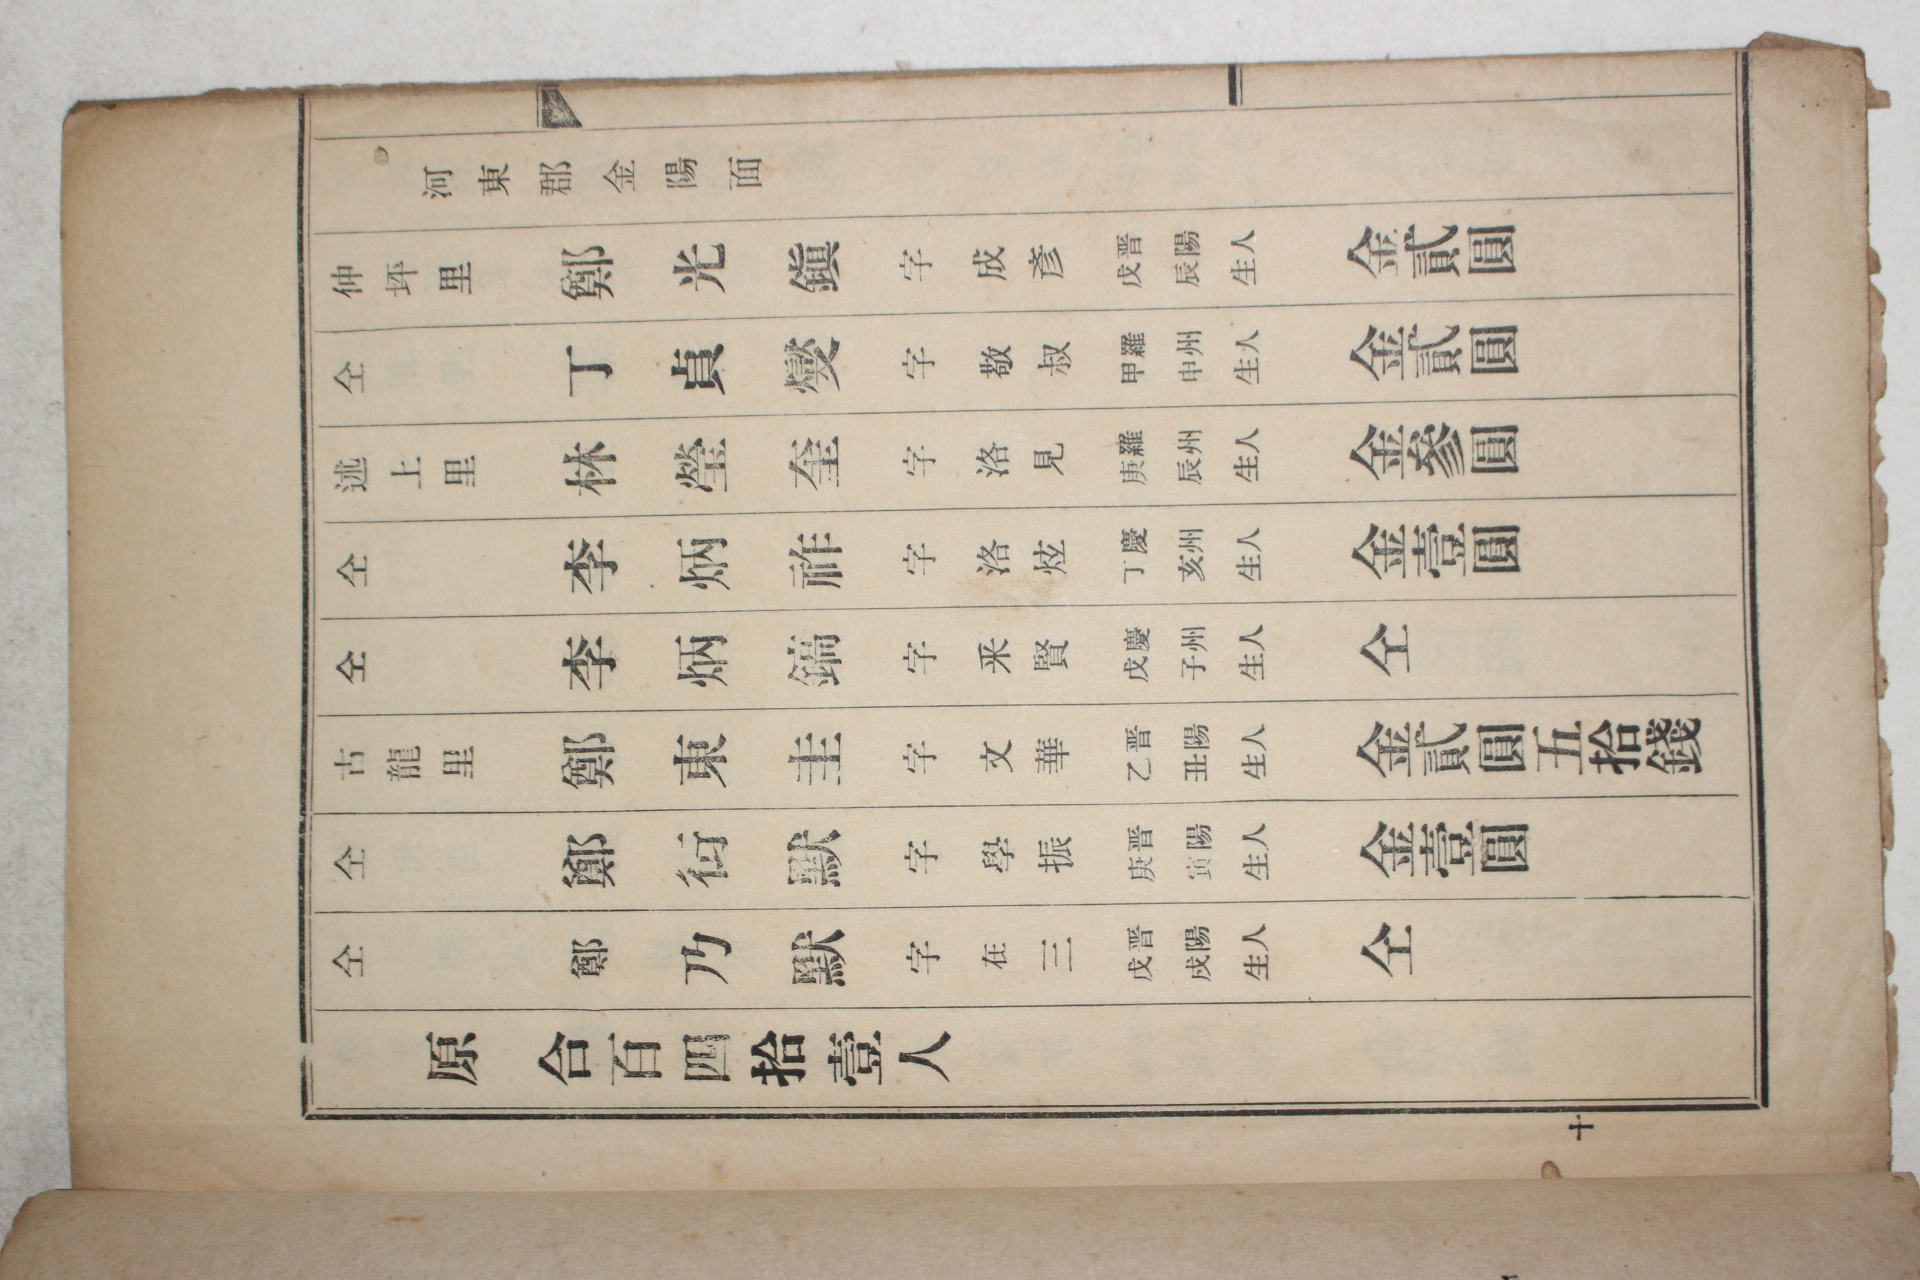 河東郡金陽面
仲坪里 鄭光鎭 字成彥 戊辰生晋陽人 金貳圓
仝 丁貞燮 字敬叔 甲申生羅州人 金貳圓
述上里 林瀅奎 字洛見 庚辰生羅州人 金參圓
仝 李炳祚 字洛炫 丁亥生慶州人 金壹圓
仝 李炳鎬 字釆賢 戊子生慶州人 仝
古龍里 鄭東圭 字文華 乙丑生晋陽人 金貳圓五拾錢
仝 鄭衍默 字學振 庚寅生晋陽人 金壹圓
仝 鄭乃默 字在三 戊戌生晋陽人 仝
原 合百四拾壹人
十